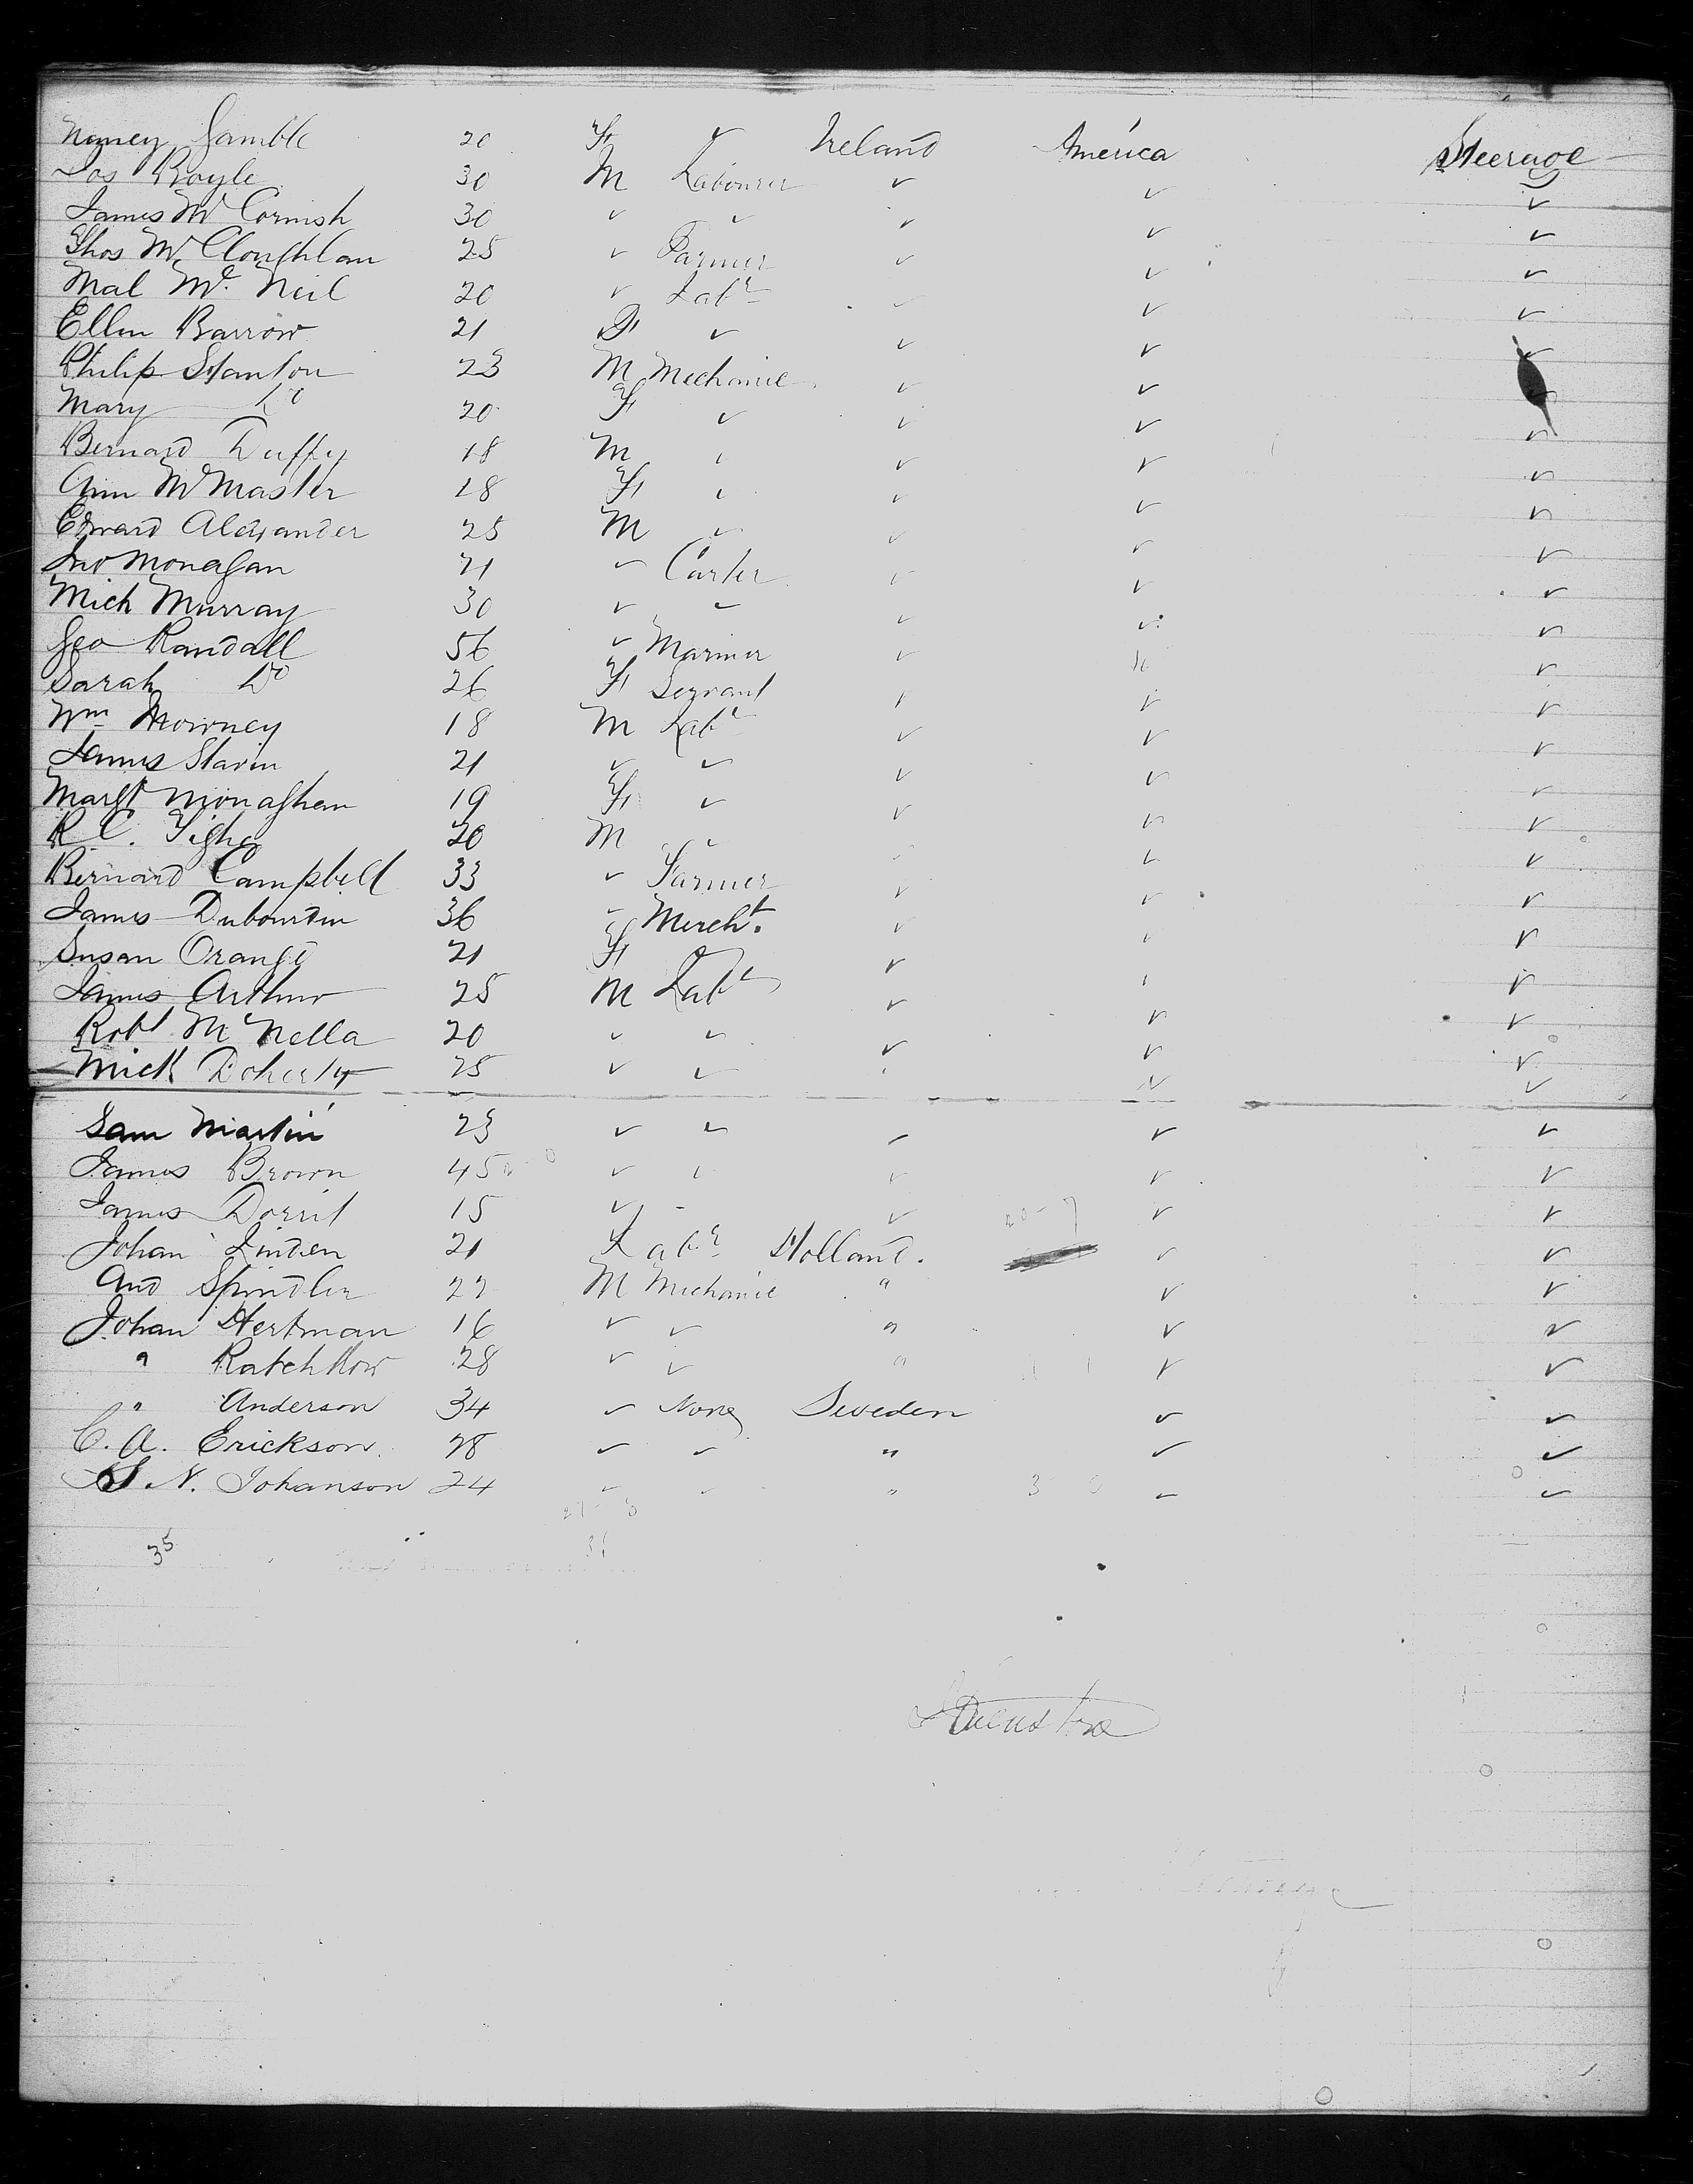 Nancy Gamble 20 F ✓ Ireland America Steerage
Jos Boyle 30 M Labourer ✓ ✓ ✓
James McCornish 30 ✓ ✓ ✓ ✓ ✓
Thos McCloughlan 25 ✓ Farmer ✓ ✓ ✓
Mal Mc Neil 20 ✓ Labr ✓ ✓ ✓
Ellen Barrow 21 F ✓ ✓ ✓ ✓
Philip Stanton 23 M Mechanic ✓ ✓ ✓
Mary Do 20 F ✓ ✓ ✓ ✓
Bernard Duffy 18 M ✓ ✓ ✓ ✓
Ann McMaster 18 F ✓ ✓ ✓ ✓
Edward Alexander 25 M ✓ ✓ ✓ ✓
Jno Monagan 21 ✓ Carter ✓ ✓ ✓
Mich Murray 30 ✓ ✓ ✓ ✓ ✓
Geo Randall 56 ✓ Mariner ✓ ✓ ✓
Sarah Do 26 F Servant ✓ ✓ ✓
Wm Mowney 18 M Labr ✓ ✓ ✓
James Slavin 21 ✓ ✓ ✓ ✓ ✓
Margt Monaghan 19 F ✓ ✓ ✓ ✓
R C. Tighe 20 M ✓ ✓ ✓ ✓
Bernard Campbell 33 ✓ Farmer ✓ ✓ ✓
James Dubourdin 36 ✓ Mercht. ✓ ✓ ✓
Susan Orange 21 F ✓ ✓ ✓
James Arthur 25 M Labr ✓ ✓ ✓
Robt McNella 20 ✓ ✓ ✓ ✓ ✓
Mick Doherty 25 ✓ ✓ ✓ ✓ ✓
Sam Martin 23 ✓ ✓ ✓ ✓ ✓
James Brown 45 ✓ ✓ ✓ ✓ ✓
James Dorrit 15 ✓ ✓ ✓ ✓ ✓
Johan Linden 21 Labr Holland. ✓ ✓
And Spindler 22 M Mechanic " ✓ ✓
Johan Hertman 16 ✓ ✓ " ✓ ✓
" 28 ✓ ✓ " ✓ ✓
" Anderson 34 ✓ None Sweden ✓ ✓
C. A. Erickson 28 ✓ ✓ " ✓ ✓
S. N. Johanson 24 ✓ ✓ " ✓ ✓
35